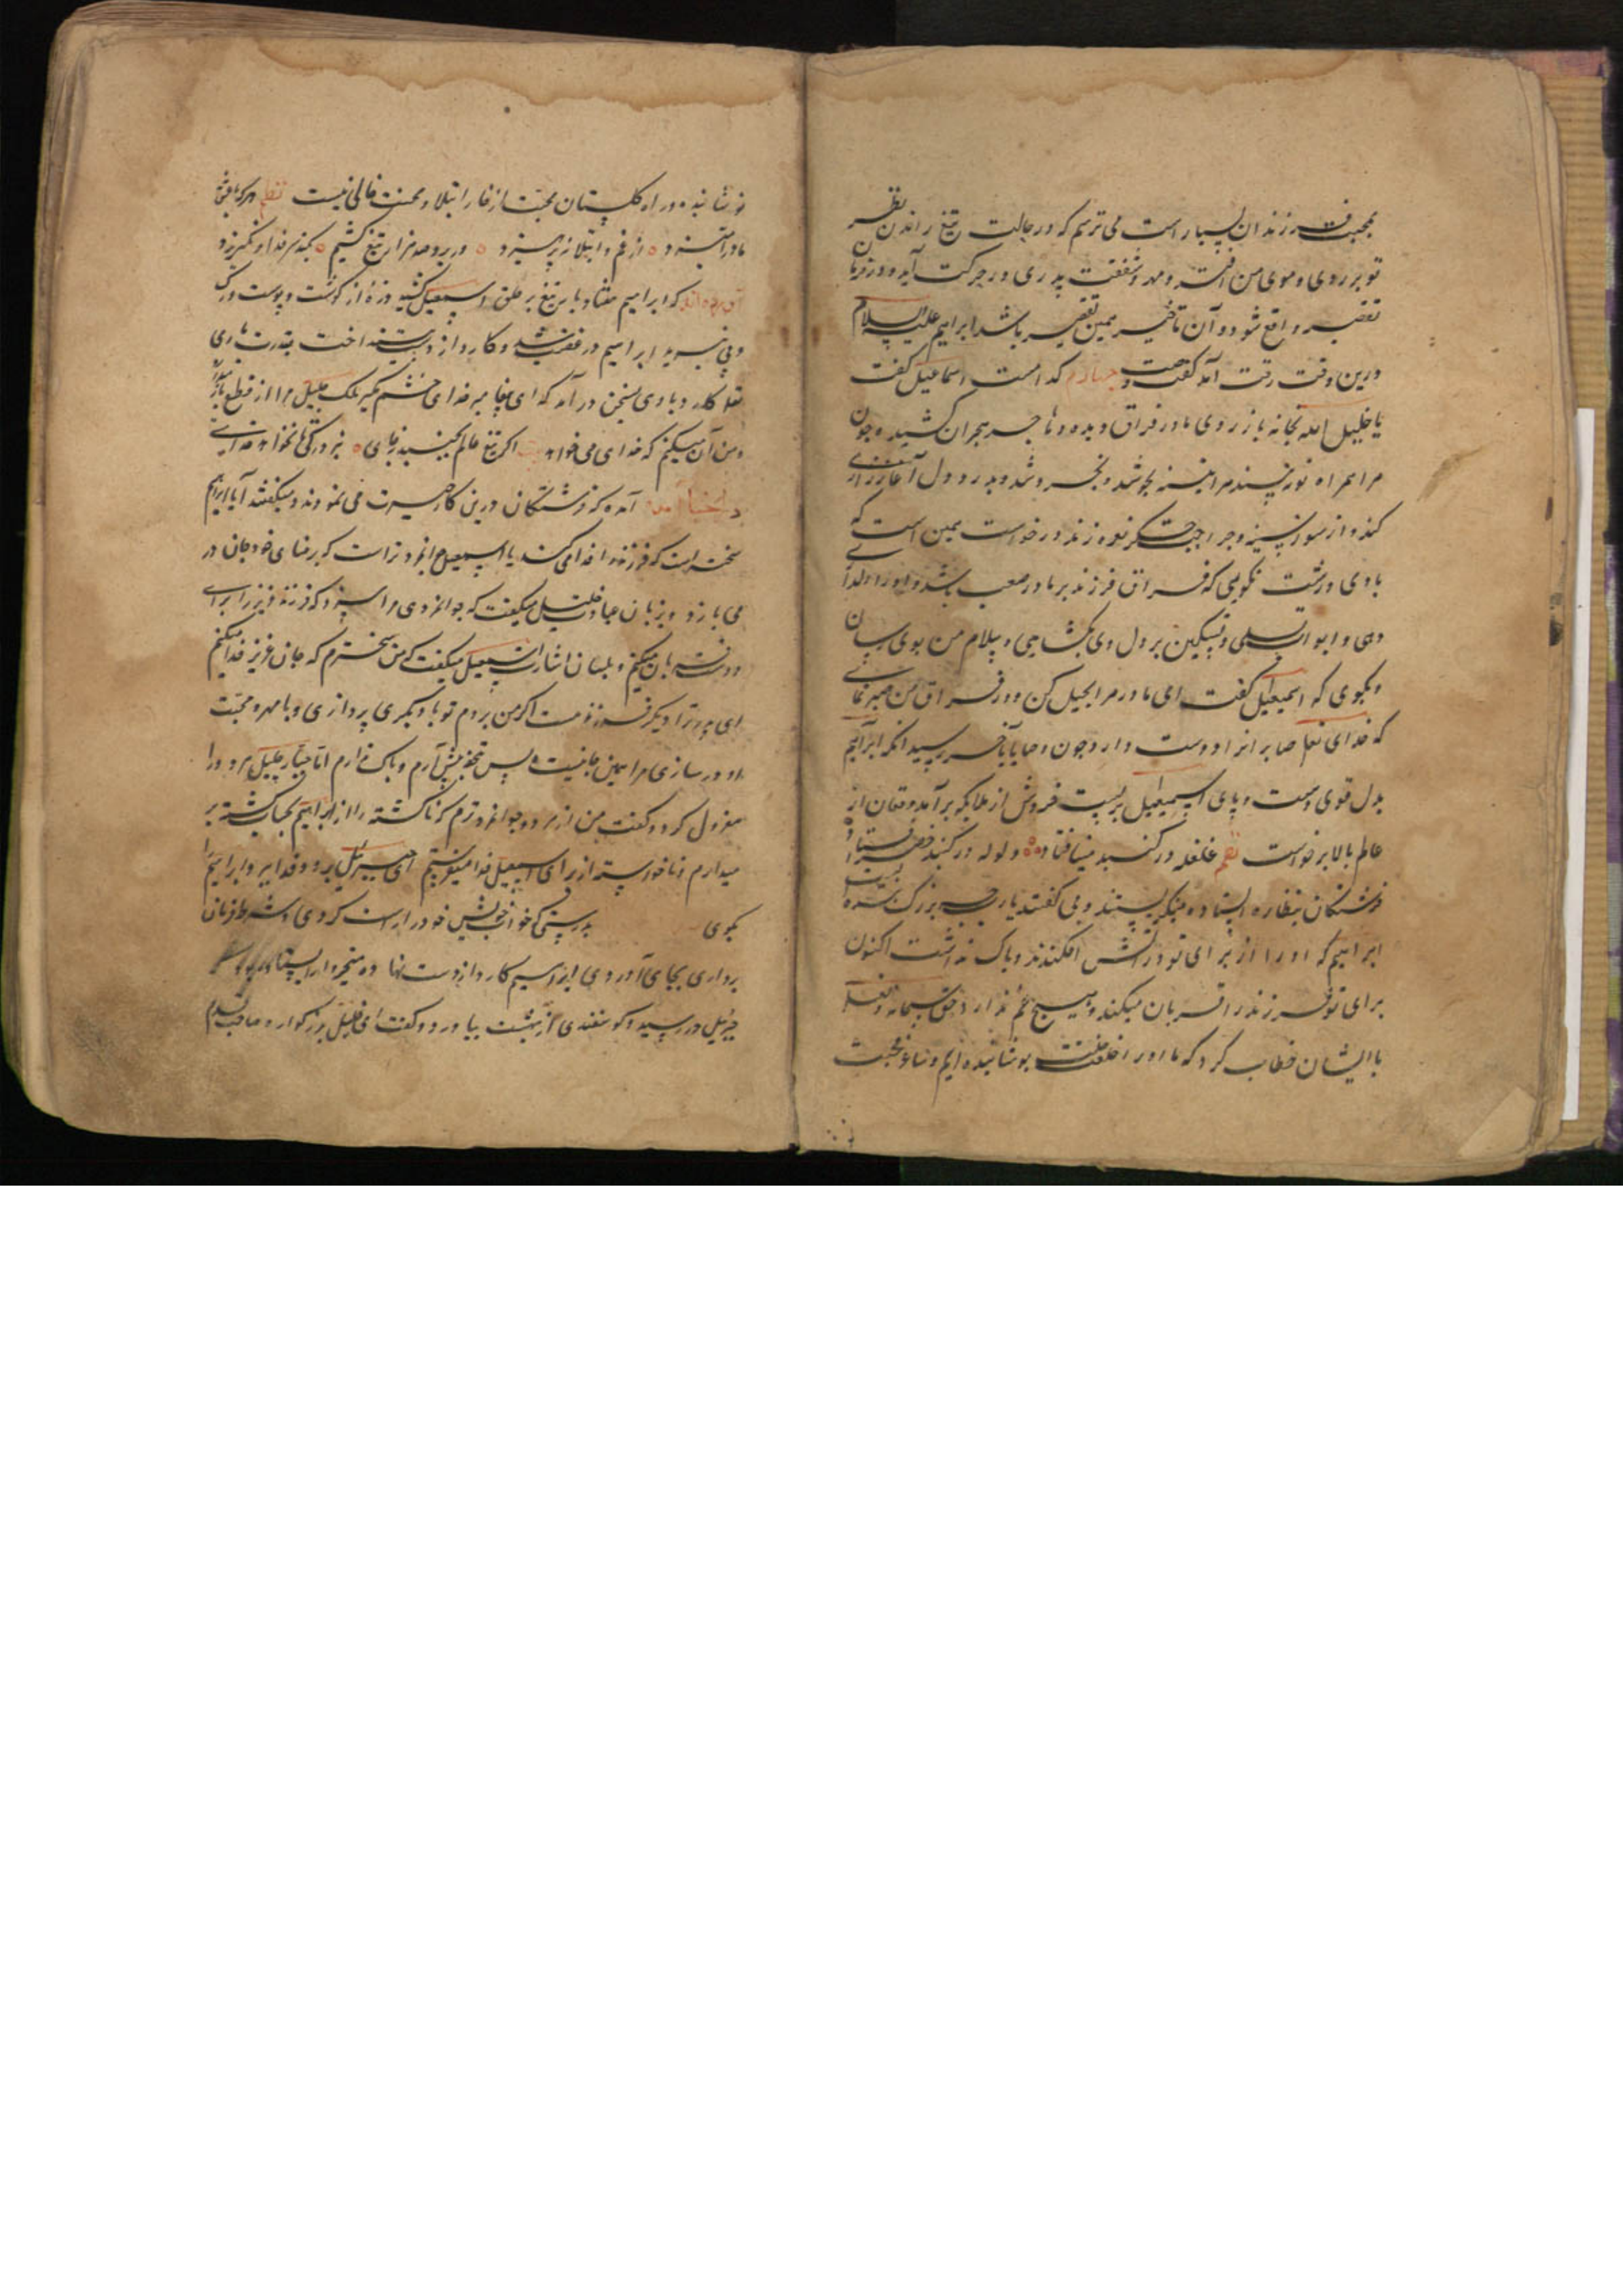 محبت فرزندان بسیار است می ترسم که در حالت تیغ راندن نظر
تو بر روی و موی من افتد و مهر و شفقت پدری در حرکت آید و در فرمان
تقصیر واقع شود و آن تاخیر همین تقصیر باشد ابراهیم علیه السلام
درین وقت رقت آمد گفت وصیت چهارم کدامست اسماعیل گفت
یا خلیل الله بخانه باز روی مادر فراق دیده و هاجر هجران کشیده چون
مرا همراه تو نه بیند مرا بینه بجوشد و بخروشد و بدرد دل آغاز زاری
کند و از سوز سینه و جراحت جگر نعره زند درخواست همین است که
با وی درشت نگویی که فراق فرزند بر مادر صعب باشد و او را دلداری
دهی و ابواب تسلی و تسکین بر دل وی بگشایی و سلام من بوی رسان
و بگوی که اسمعیل گفت ای مادر مرا بحل کن و در فراق من صبر نمای
که خدای تعالی صابرانرا دوست دارد چون وصایا بآخر رسید آنگه ابراهیم
بدل قوی دست و پای اسمعیل بربست خروش از ملایکه برآمد و فغان از
عالم بالا برخواست نظم غلغله در گنبد مینا فتاد ولوله در گنبد خضرا فتاد
فرشتگان بنظاره ایستاده مینگریستند و می گفتند یارب چه بزرگ بنده است
ابراهیم که او را از برای تو در آتش افکندند و باک نداشت اکنون
برای تو فرزند را قربان میکند و هیچ غم ندارد حق سبحانه و تعالی
با ایشان خطاب کرد که ما او را خلعت خلت پوشانیده ایم و ساغر محبت
نوشانیده و راه گلستان محبت از خار ابتلا و محنت خالی نیست نظم هر که بعشق
ما درآمیزد از غم و ابتلا نپرهیزد ور برو صد هزار تیغ کشیم بکند سر فدا و نگریزد
آورده اند که ابراهیم هفتاد بار تیغ بر حلق اسمعیل کشید ذره از گوشت و پوست و رگ
وپی نبرید ابراهیم در غضب شد و کارد از دست بینداخت بقدرت باری
تعالی کارد با وی بسخن درآمد که ای پیغامبر خدای خشم مگیر ملک جلیل مرا از قطع باز میدارد
و من آن میکنم که خدای می خواهد بیت اگر تیغ عالم بجنبد ز جای نبرد رگی تا نخواهد خدای
در اخبار آمده که فرشتگان درین کار حیرت می نمودند و میگفتند آیا ابراهیم
سخی ترست که فرزند را فدا می کند یا اسمعیل جوانمردتر است که برضای خود جان در
می بازد و بزبان حال خلیل میگفت که جوانمردی مرا سزد که فرزند عزیز را برای
دوست قربان میکنم و بلسان اشارت اسمعیل میگفت که من سخی ترم که جان عزیز فدا میکنم
ای پدر ترا دیگر فرزند هست اگر من بروم تو با دیگری پردازی و با مهر و محبت
او در سازی مرا همین جانیست و پس تحفه پیش آرم و باک ندارم اما جبار جلیل هر دو را
معزول کرد و گفت من از هر دو جوانمردترم که ناگشته را از ابراهیم بجای کشته بر
میدارم و ناخواسته از برای اسمعیل فدا میفرستیم ای جبرئیل برو و فدا ببر و ابراهیم را
بگوی بدرستی که خواب خویش خود را راست کردی و شرط فرمان
برداری بجای آوردی ابراهیم کارد از دست نهاده متحیر وار ایستاده
جبرئیل در رسید و گوسفندی از بهشت بیاورد و گفت ای خلیل بزرگوار و صاحب